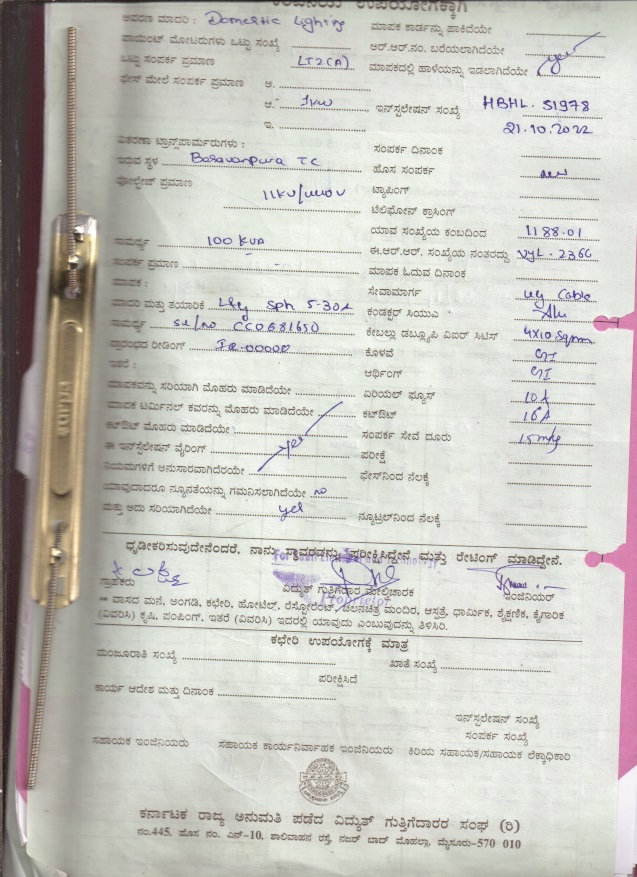 ಕಂಪನಿಯ ಉಪಯೋಗಕ್ಕಾಗಿ
ಆವರಣ ಮಾದರಿ : Domestic Lighting ಮಾಪಕ ಕಾರ್ಡನ್ನು ಹಾಕಿದೆಯೇ
ಪಾಯಿಂಟ್ ಮೋಟರುಗಳು ಒಟ್ಟು ಸಂಖ್ಯೆ ಆರ್.ಆರ್.ನಂ. ಬರೆಯಲಾಗಿದೆಯೇ yes
ಒಟ್ಟು ಸಂಪರ್ಕ ಪ್ರಮಾಣ LT2(A) ಮಾಪಕದಲ್ಲಿ ಹಾಳೆಯನ್ನು ಇಡಲಾಗಿದೆಯೇ
ಫೇಸ್ ಮೇಲೆ ಸಂಪರ್ಕ ಪ್ರಮಾಣ ಆ.
ಆ. 1KW ಇನ್‌ಸ್ಟಲೇಷನ್ ಸಂಖ್ಯೆ HBHL. 51978
ಇ. 21.10.2022
ವಿತರಣಾ ಟ್ರಾನ್ಸ್‌ಪಾರ್ಮರುಗಳು : ಸಂಪರ್ಕ ದಿನಾಂಕ
ಇರುವ ಸ್ಥಳ Basavanpura TC ಹೊಸ ಸಂಪರ್ಕ new
ವೋಲ್ಟೇಜ್ ಪ್ರಮಾಣ 11KV/440V ಟ್ಯಾಪಿಂಗ್
ಟೆಲಿಫೋನ್ ಕ್ರಾಸಿಂಗ್
ಯಾವ ಸಂಖ್ಯೆಯ ಕಂಬದಿಂದ 1188.01
ಸಾಮರ್ಥ್ಯ 100 KVA ಈ.ಆರ್.ಆರ್. ಸಂಖ್ಯೆಯ ನಂತರದ್ದು VYL. 2366
ಸಂಪರ್ಕ ಪ್ರಮಾಣ ಮಾಪಕ ಓದುವ ದಿನಾಂಕ
ಮಾಪಕ : ಸೇವಾಮಾರ್ಗ ug Cable
ಮಾದರಿ ಮತ್ತು ತಯಾರಿಕೆ L&g sph 5-30A ಕಂಡಕ್ಟರ್ ಸಿಯುಎ Alu
ಸಾಮರ್ಥ್ಯ sl/no CC0681650 ಕೇಬಲ್ಲು ಡಬ್ಲ್ಯೂಪಿ ವಿಐರ್ ಸಿಟಿಸ್ 4X10 sqmm
ಪ್ರಾರಂಭದ ರೀಡಿಂಗ್ IR-00000 ಕೊಳವೆ GI
ಇತರೆ : ಆರ್ಥಿಂಗ್ GI
ಮಾಪಕವನ್ನು ಸರಿಯಾಗಿ ಮೊಹರು ಮಾಡಿದೆಯೇ ಏರಿಯಲ್ ಫ್ಯೂಸ್ 10A
ಮಾಪಕ ಟರ್ಮಿನಲ್ ಕವರನ್ನು ಮೊಹರು ಮಾಡಿದೆಯೇ ಕಟ್‌ಔಟ್ 16A
ಕಟ್‌ಔಟ್ ಮೊಹರು ಮಾಡಿದೆಯೇ ಸಂಪರ್ಕ ಸೇವೆ ದೂರು
ಈ ಇನ್‌ಸ್ಟಲೇಷನ್ ವೈರಿಂಗ್ yes ಪರೀಕ್ಷೆ
ನಿಯಮಗಳಿಗೆ ಅನುಸಾರವಾಗಿದೆರಯೇ ಫೇಸ್‌ನಿಂದ ನೆಲಕ್ಕೆ
ಯಾವುದಾದರೂ ನ್ಯೂನತೆಯನ್ನು ಗಮನಿಸಲಾಗಿದೆಯೇ no
ಮತ್ತು ಅದು ಸರಿಯಾಗಿದೆಯೇ yes ನ್ಯೂಟ್ರಲ್‌ನಿಂದ ನೆಲಕ್ಕೆ
ಧೃಡೀಕರಿಸುವುದೇನೆಂದರೆ, ನಾನು ಸ್ಥಾವರವನ್ನು ಪರೀಕ್ಷಿಸಿದ್ದೇನೆ ಮತ್ತು ರೇಟಿಂಗ್ ಮಾಡಿದ್ದೇನೆ.
ಗ್ರಾಹಕರು ವಿದ್ಯುತ್ ಗುತ್ತಿಗೆದಾರ ಮೇಲ್ವಿಚಾರಕ ಇಂಜಿನಿಯರ್
Proprietor
** ವಾಸದ ಮನೆ, ಅಂಗಡಿ, ಕಛೇರಿ, ಹೋಟೆಲ್, ರೆಸ್ಟೋರೆಂಟ್, ಚಲನಚಿತ್ರ ಮಂದಿರ, ಆಸ್ಪತ್ರೆ, ಧಾರ್ಮಿಕ, ಶೈಕ್ಷಣಿಕ, ಕೈಗಾರಿಕ
(ವಿವರಿಸಿ) ಕೃಷಿ, ಪಂಪಿಂಗ್, ಇತರೆ (ವಿವರಿಸಿ) ಇದರಲ್ಲಿ ಯಾವುದು ಎಂಬುವುದನ್ನು ತಿಳಿಸಿರಿ.
ಕಛೇರಿ ಉಪಯೋಗಕ್ಕೆ ಮಾತ್ರ
ಮಂಜೂರಾತಿ ಸಂಖ್ಯೆ ಖಾತೆ ಸಂಖ್ಯೆ
ಪರೀಕ್ಷಿಸಿದೆ
ಕಾರ್ಯ ಆದೇಶ ಮತ್ತು ದಿನಾಂಕ
ಇನ್‌ಸ್ಟಲೇಷನ್ ಸಂಖ್ಯೆ
ಸಂಪರ್ಕ ಸಂಖ್ಯೆ
ಸಹಾಯಕ ಇಂಜಿನಿಯರು ಸಹಾಯಕ ಕಾರ್ಯನಿರ್ವಾಹಕ ಇಂಜಿನಿಯರು ಕಿರಿಯ ಸಹಾಯಕ/ಸಹಾಯಕ ಲೆಕ್ಕಾಧಿಕಾರಿ
ಕರ್ನಾಟಕ ರಾಜ್ಯ ಅನುಮತಿ ಪಡೆದ ವಿದ್ಯುತ್ ಗುತ್ತಿಗೆದಾರರ ಸಂಘ (ರಿ)
ನಂ.445, ಹೊಸ ನಂ. ಎನ್-10, ಶಾಲಿವಾಹನ ರಸ್ತೆ, ನಜರ್ ಬಾದ್ ಮೊಹಲ್ಲಾ, ಮೈಸೂರು-570 010